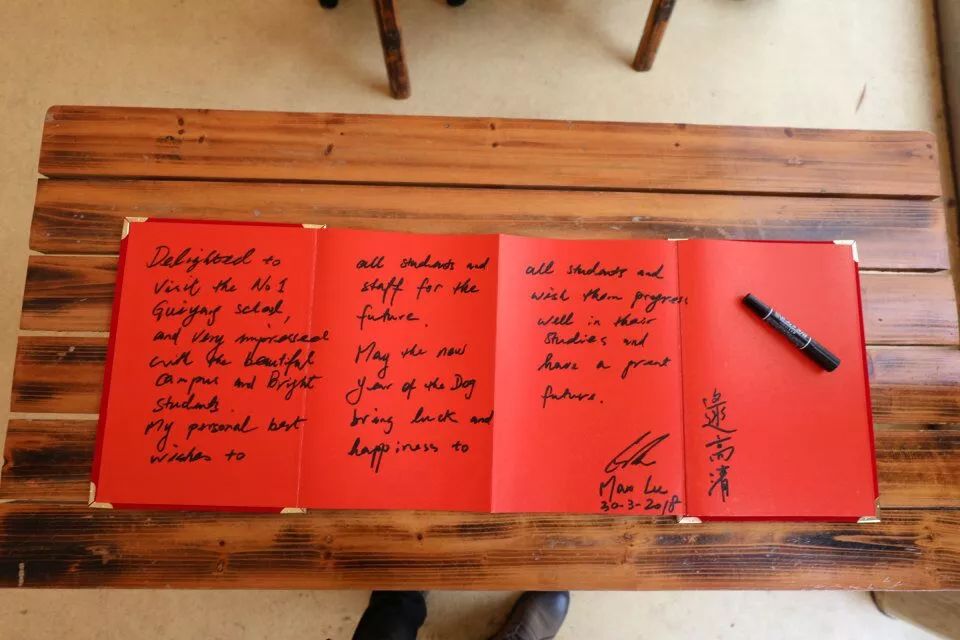 Delighted to
visit the No 1
Guiyang school,
and very impressed
with the beautiful
campus and Bright
students.
My personal best
wishes to
all students and
staff for the
future.
May the new
year of the Dog
bring luck and
happiness to
all students and
wish them progress
well in their
studies and
have a great
future.
Max Lu
30-3-2018
高清